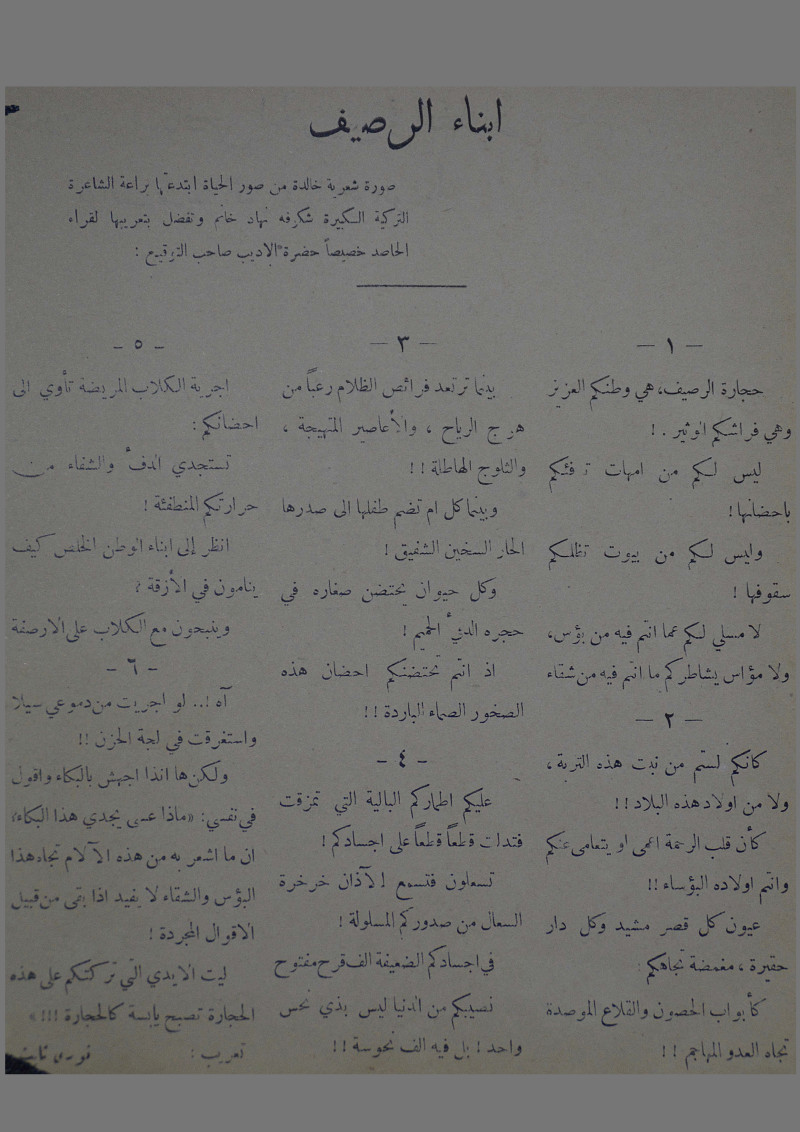 ابناء الرصيف
صورة شعرية خالدة من صور الحياة ابتدعتها براعة الشاعرة
التركية الكبيرة شكوفه نهاد خانم وتفضل بتعريبها لقراء
الحاصد خصيصاً حضرة الاديب صاحب التوقيع :
— ١ —
حجارة الرصيف، هي وطنكم العزيز
وهي فراشكم الوثير . !
ليس لكم من امهات تدفئكم
باحضانها !
وليس لكم من بيوت تظللكم
سقوفها !
لا مسلي لكم عما انتم فيه من بؤس،
ولا مؤاس يشاطركم ما انتم فيه من شقاء
— ٢ —
كانكم لستم من نبت هذه التربة ،
ولا من اولاد هذه البلاد !!
كأن قلب الرحمة اعمى او يتعامى عنكم
وانتم اولاده البؤساء !!
عيون كل قصر مشيد وكل دار
حقيرة ، مغمضة تجاهكم
كأبواب الحصون والقلاع الموصدة
تجاه العدو المهاجم !!
— ٣ —
بينما ترتعد فرائص الظلام رعباً من
هرج الرياح ، والأعاصير المتهيجة ،
والثلوج الهاطلة !!
وبينما كل ام تضم طفلها الى صدرها
الحار السخين الشفيق !
وكل حيوان يحتضن صغاره في
حجره الدفيء الحميم !
اذ انتم تحتضنكم احضان هذه
الصخور الصماء الباردة !!
- ٤ -
عليكم اطماركم البالية التي تمزقت
فتدلت قطعاً قطعاً على اجسادكم !
تسعلون فتسمع الآذان خرخرة
السعال من صدوركم المسلولة !
في اجسادكم الضعيفة الف قرح مفتوح
نصيبكم من الدنيا ليس بذي نحس
واحد ! بل فيه الف نحوسة !!
- ٥ -
اجرية الكلاب المريضة تأوي الى
احضانكم :
تستجدي الدفء والشفاء من
حرارتكم المنطفئة !
انظر إلى ابناء الوطن الخلص كيف
ينامون في الأزقة ؟
وينبحون مع الكلاب على الارصفة
- ٦ -
آه !.. لو اجريت من دموعي سيلا
واستغرقت في لجة الحزن !!
ولكن ها انذا اجهش بالبكاء واقول
في نفسي: «ماذا عسى يجدي هذا البكاء؟
ان ما اشعر به من هذه الآلام تجاه هذا
البؤس والشقاء لا يفيد اذا بقى من قبيل
الاقوال المجردة !
ليت الايدي التي تركتكم على هذه
الحجارة تصبح يابسة كالحجارة !!! »
تعريب : فوزي ثابت